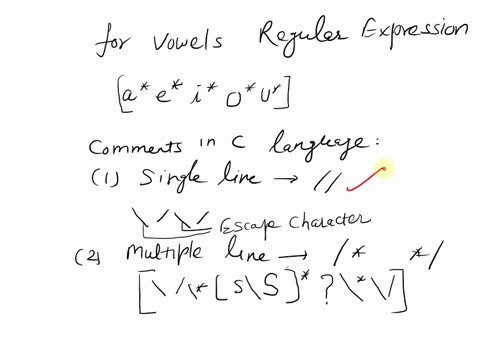 for vowels Regular Expression
[a* e* i* o* u*]
Comments in C language:
(1) Single line → //
\/\/ Escape Character
(2) Multiple line → /* */
[\/\*[s\S]*?\*\/]